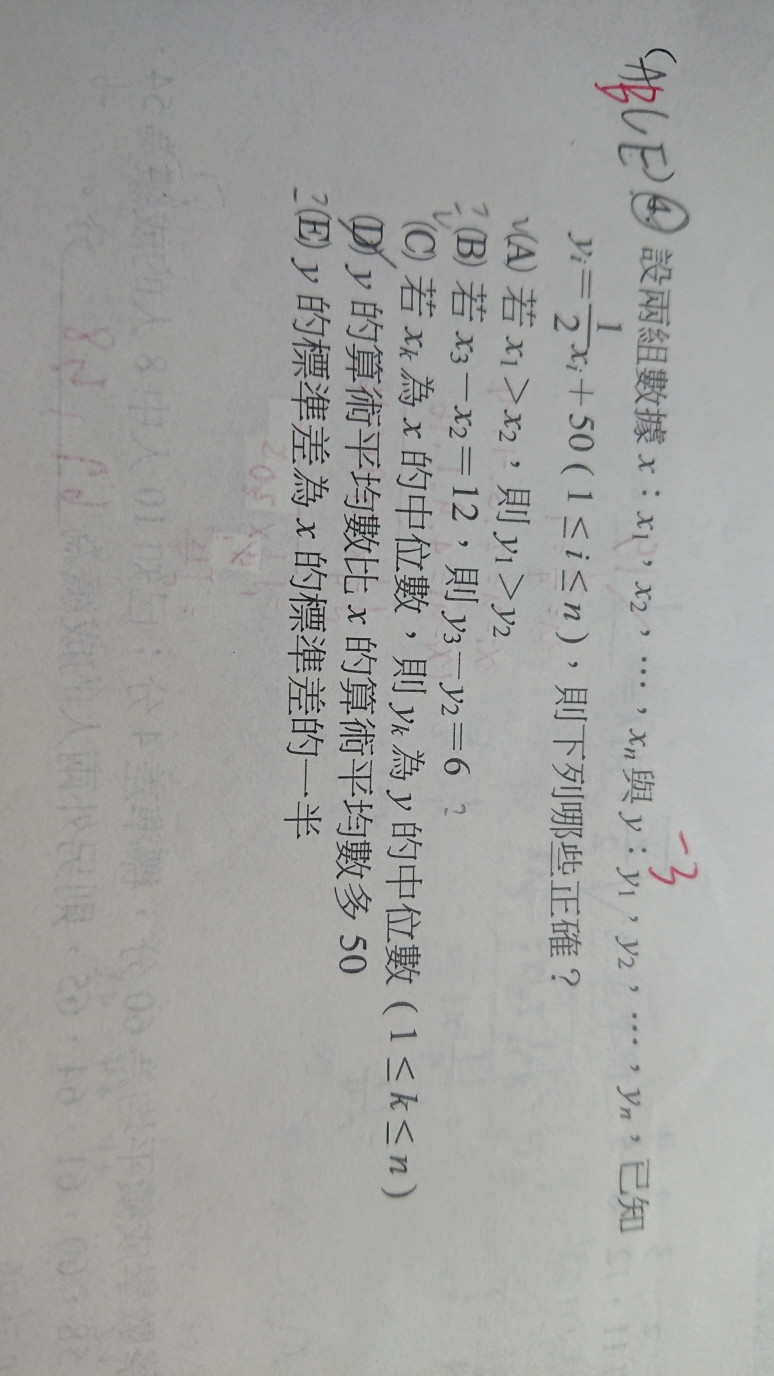 -3
(ABCE) 4. 設兩組數據 x：x₁，x₂，…，xₙ 與 y：y₁，y₂，…，yₙ，已知
yᵢ=1/2xᵢ+50 ( 1≤i≤n )，則下列哪些正確？
✓(A) 若 x₁>x₂，則 y₁>y₂
?(B) 若 x₃−x₂=12，則 y₃−y₂=6 ?
✓(C) 若 xₖ 為 x 的中位數，則 yₖ 為 y 的中位數 ( 1≤k≤n )
(D) y 的算術平均數比 x 的算術平均數多 50
?(E) y 的標準差為 x 的標準差的一半